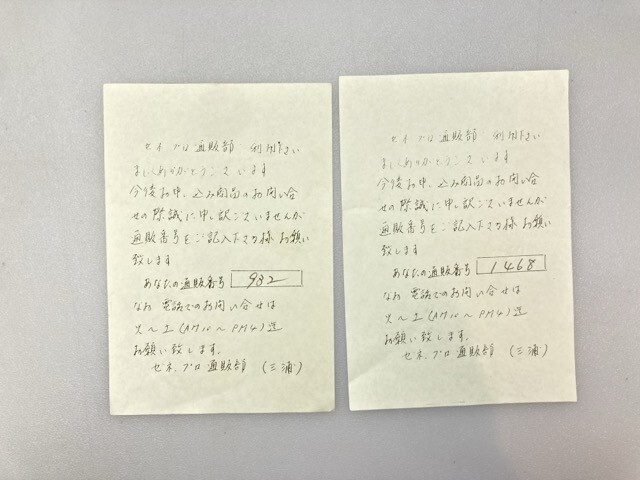 ゼネプロ通販部 利用下さい
ましてありがとうございます
今後お申し込み商品のお問い合
せの際誠に申し訳ございませんが
通販番号をご記入下さる様お願い
致します
あなたの通販番号 982
なお 電話でのお問い合せは
火〜土(AM10〜PM4)迄
お願い致します。
ゼネ.プロ通販部 (三浦)
ゼネプロ通販部 利用下さい
ましてありがとうございます
今後お申し込み商品のお問い合
せの際誠に申し訳ございませんが
通販番号をご記入下さる様お願い
致します
あなたの通販番号 1468
なお 電話でのお問い合せは
火〜土(AM10〜PM4)迄
お願い致します。
ゼネ.プロ通販部 (三浦)